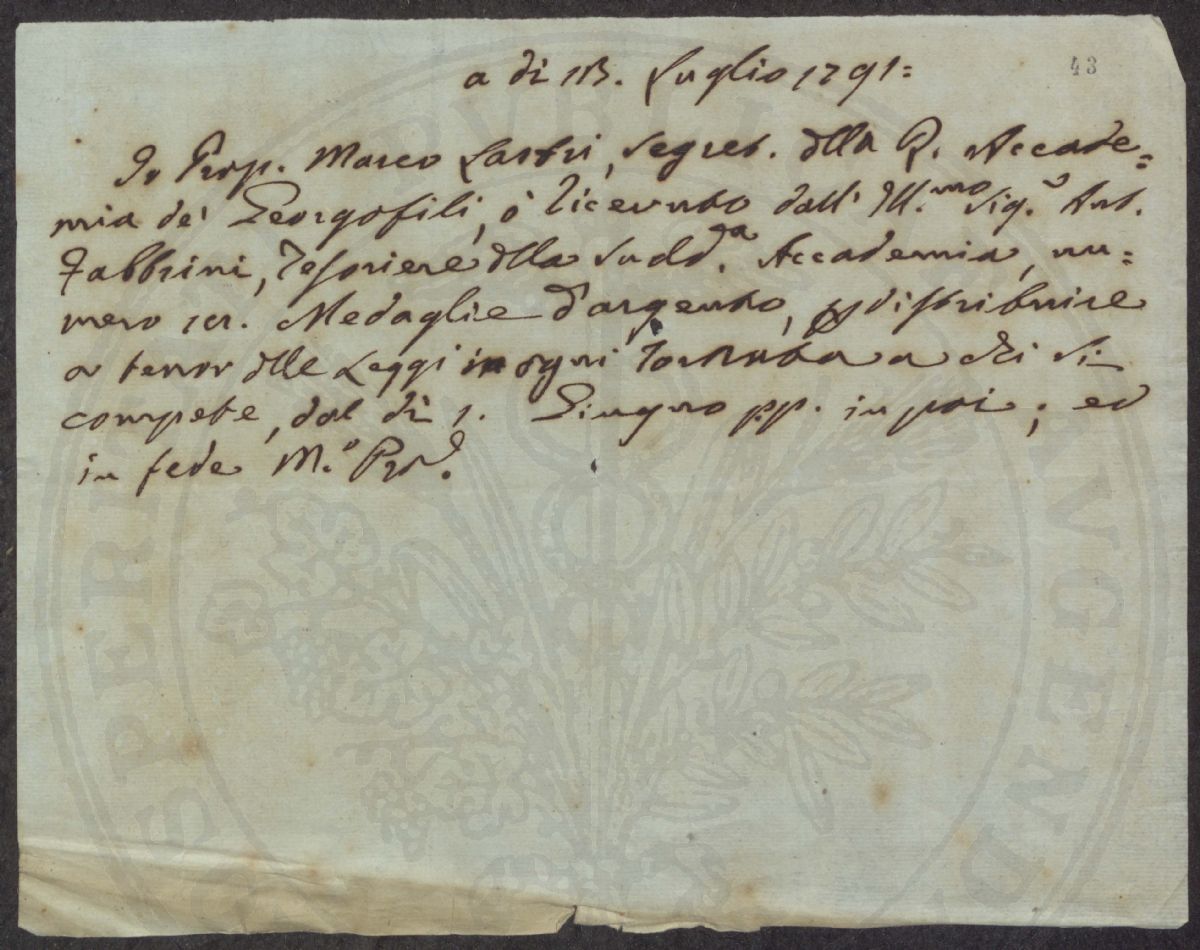 43
a dì 13. Luglio 1791=
Io Prop. Marco Lastri, Segret. della R. Accade=
mia de' Georgofili, ò ricevuto dall' Ill.mo Sig.r Ant.
Fabbrini, Tesoriere della Sudd.ta Accademia, nu=
mero Medaglie d'argento, p distribuire
a tenor delle Leggi in ogni Tornata a chi si
compete, dal dì 1. Giugno pp. in poi; ed
in fede M.o Pro.